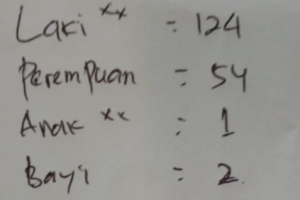 Laki ×× = 124
Perempuan = 54
Anak ×× : 1
Bayi : 2